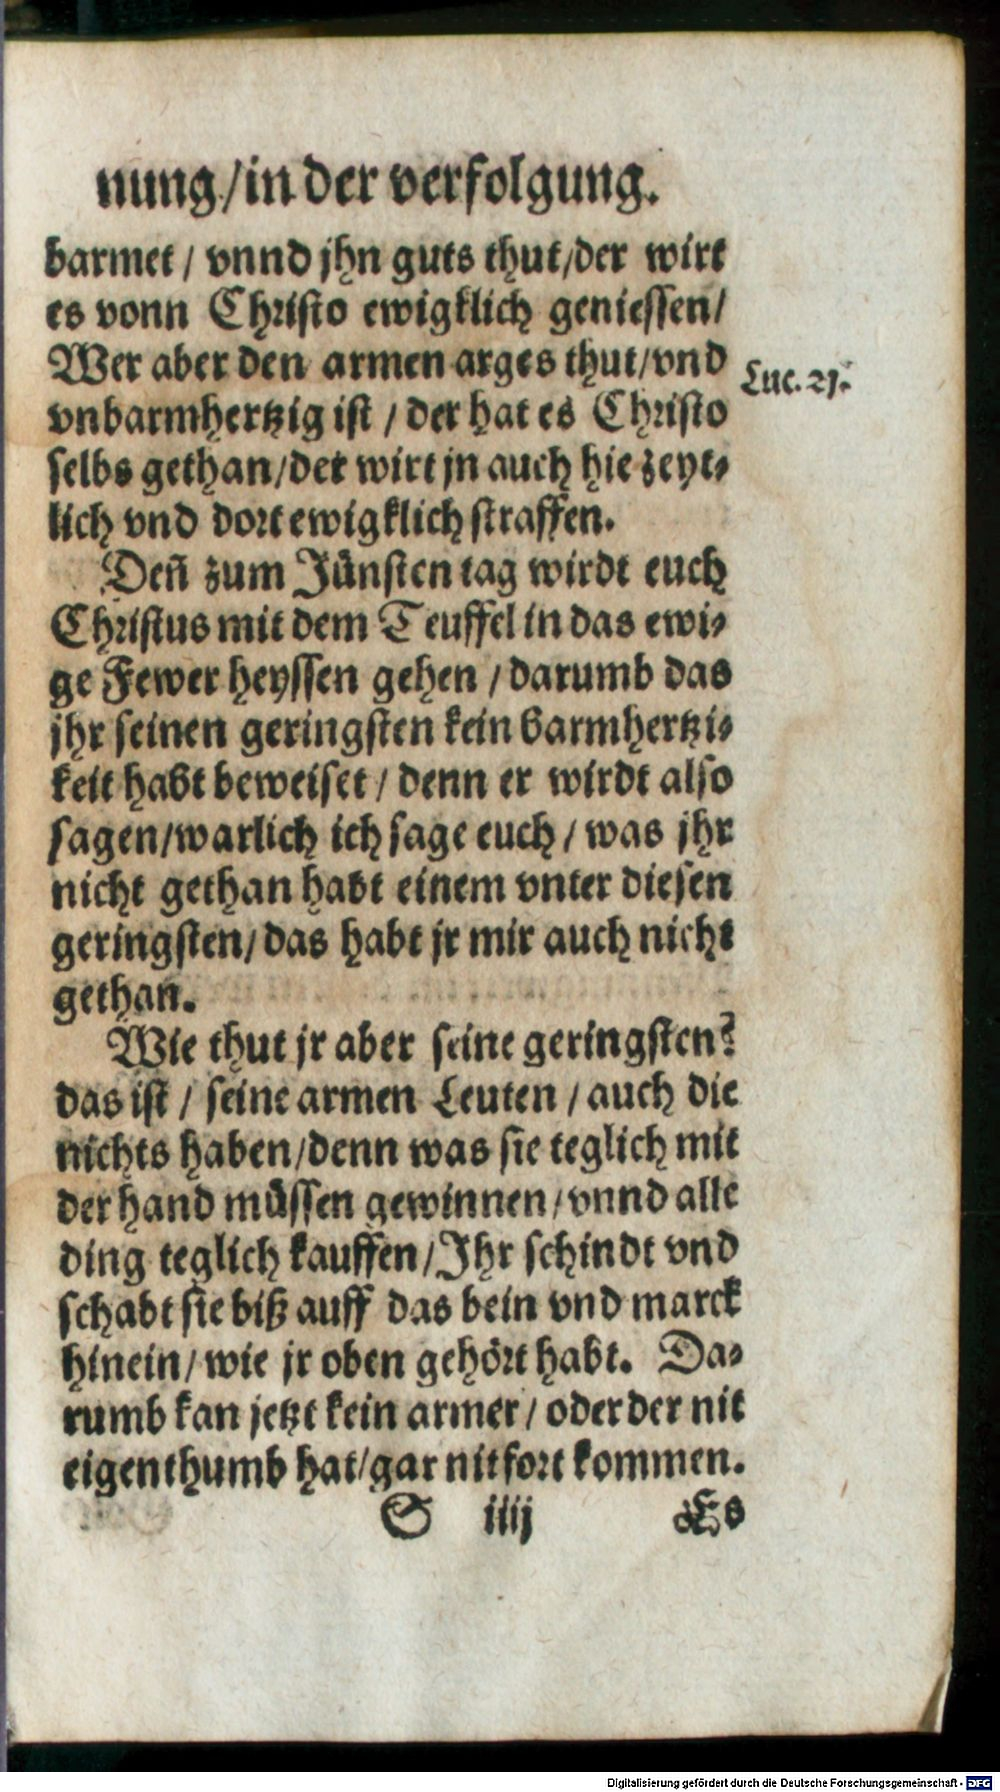 nung/in der verfolgung.
barmet / vnnd jhn guts thut/der wirt
es vonn Christo ewigklich geniessen/
Wer aber den armen arges thut/vnd
Luc. 21.
vnbarmhertzig ist / der hat es Christo
selbs gethan/der wirt jn auch hie zeyt-
lich vnd dort ewigklich straffen.
Deñ zum Jünsten tag wirdt euch
Christus mit dem Teuffel in das ewi-
ge Fewer heyssen gehen / darumb das
jhr seinen geringsten kein barmhertzi-
keit habt beweiset / denn er wirdt also
sagen/warlich ich sage euch / was jhr
nicht gethan habt einem vnter diesen
geringsten/das habt jr mir auch nicht
gethan.
Wie thut jr aber seine geringsten?
das ist / seine armen Leuten / auch die
nichts haben/denn was sie teglich mit
der hand müssen gewinnen/vnnd alle
ding teglich kauffen/Ihr schindt vnd
schabt sie biß auff das bein vnd marck
hinein/wie jr oben gehört habt. Da-
rumb kan jetzt kein armer/oder der nit
eigenthumb hat/gar nit fort kommen.
S iiij Es
Digitalisierung gefördert durch die Deutsche Forschungsgemeinschaft - DFG